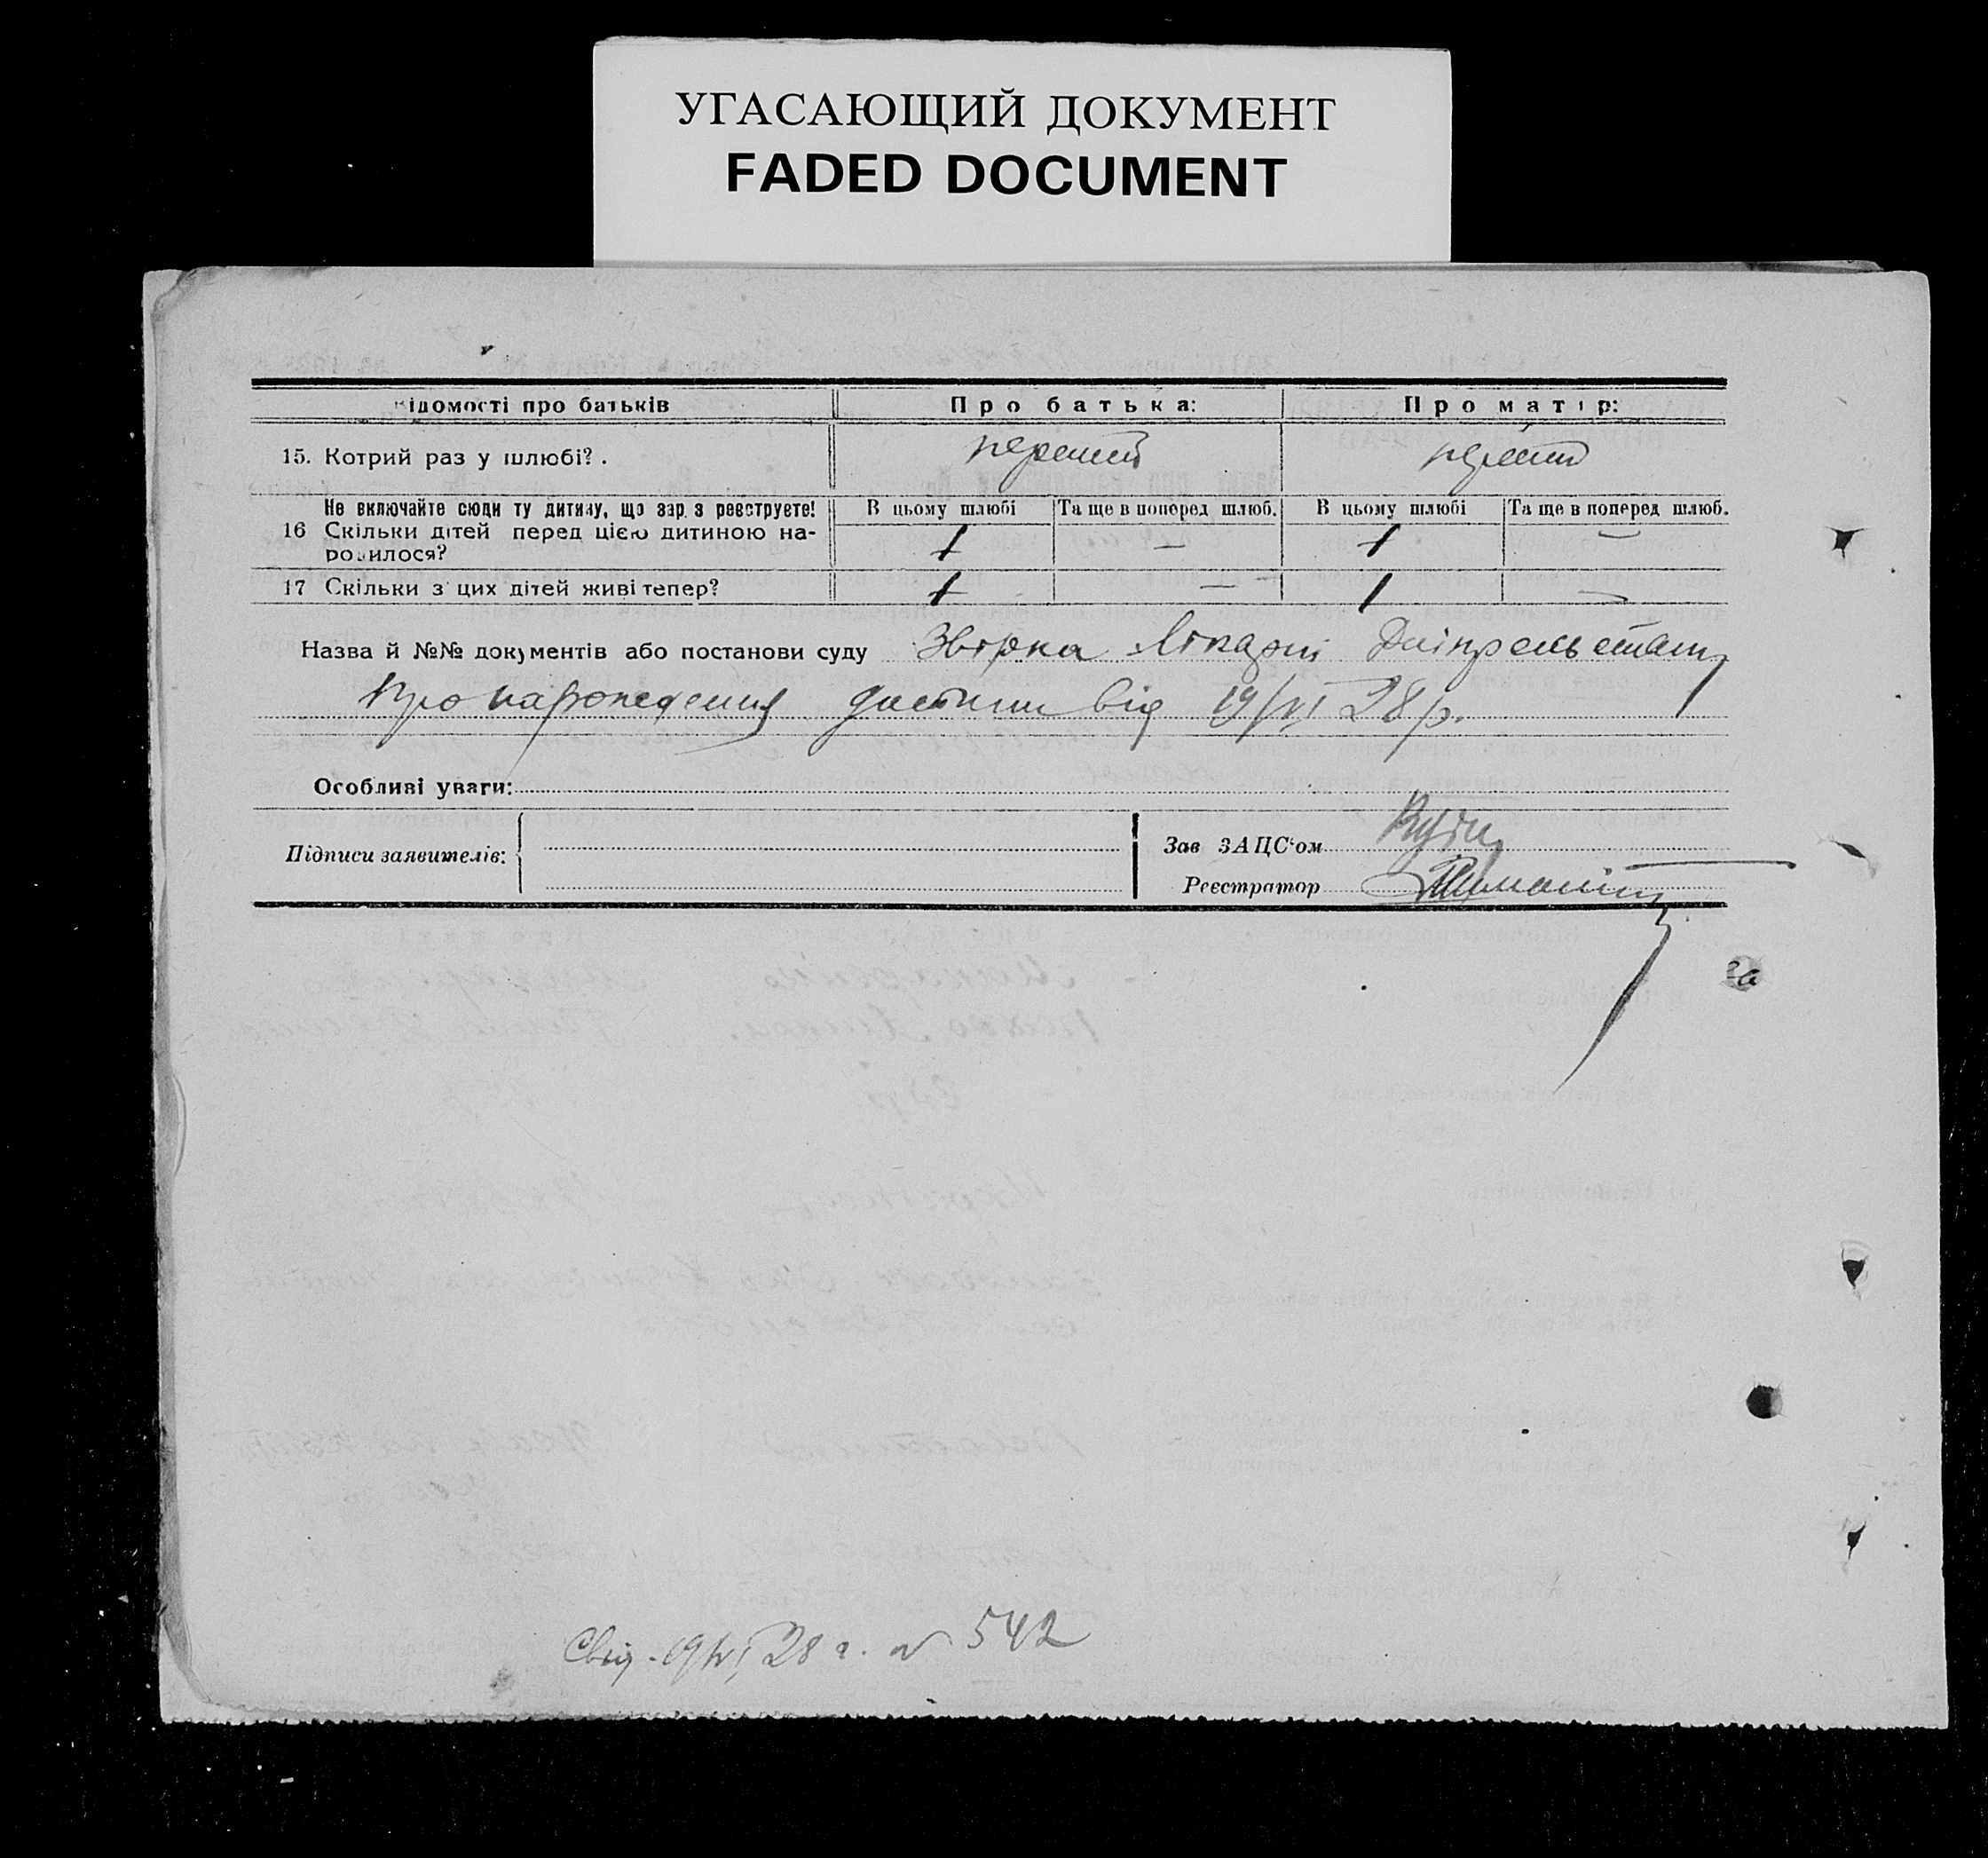 УГАСАЮЩИЙ ДОКУМЕНТ
FADED DOCUMENT
ідомості про батьків Про батька: Про матір:
15. Котрий раз у шлюбі?. перший перший
Не включайте сюди ту дитину, що зар з реєструєте! В цьому шлюбі Та ще в поперед шлюб. В цьому шлюбі Та ще в поперед шлюб.
16 Скільки дітей перед цією дитиною на-
родилося? 1 — 1 —
17 Скільки з цих дітей живі тепер? 1 — 1 —
Назва й №№ документів або постанови суду Лікарні
Про народження дитини від 19/VI 28 р.
Особливі уваги:
Підписи заявителів: Зав ЗАЦС‘ом
Реєстратор
за
Свід. 19/VI 28 г. № 542